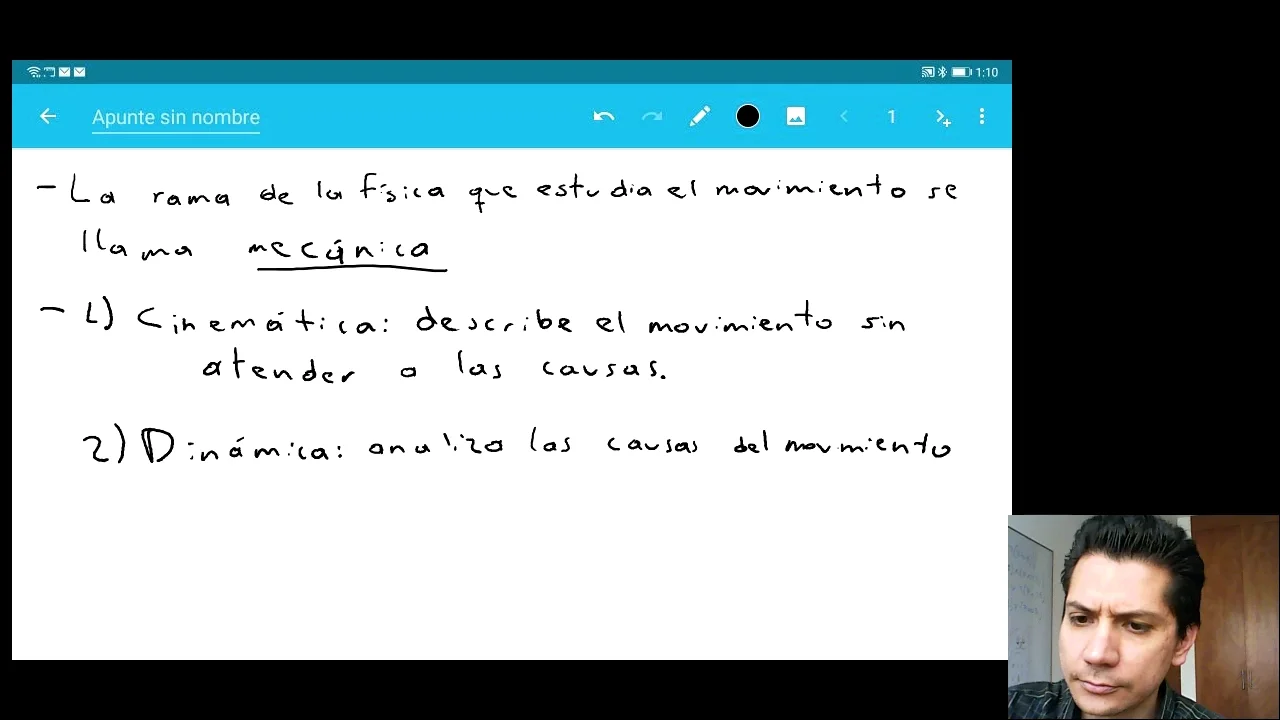 1:10
Apunte sin nombre
1
- La rama de la física que estudia el movimiento se
llama mecánica
- 1) Cinemática: describe el movimiento sin
atender a las causas.
2) Dinámica: analiza las causas del movimiento